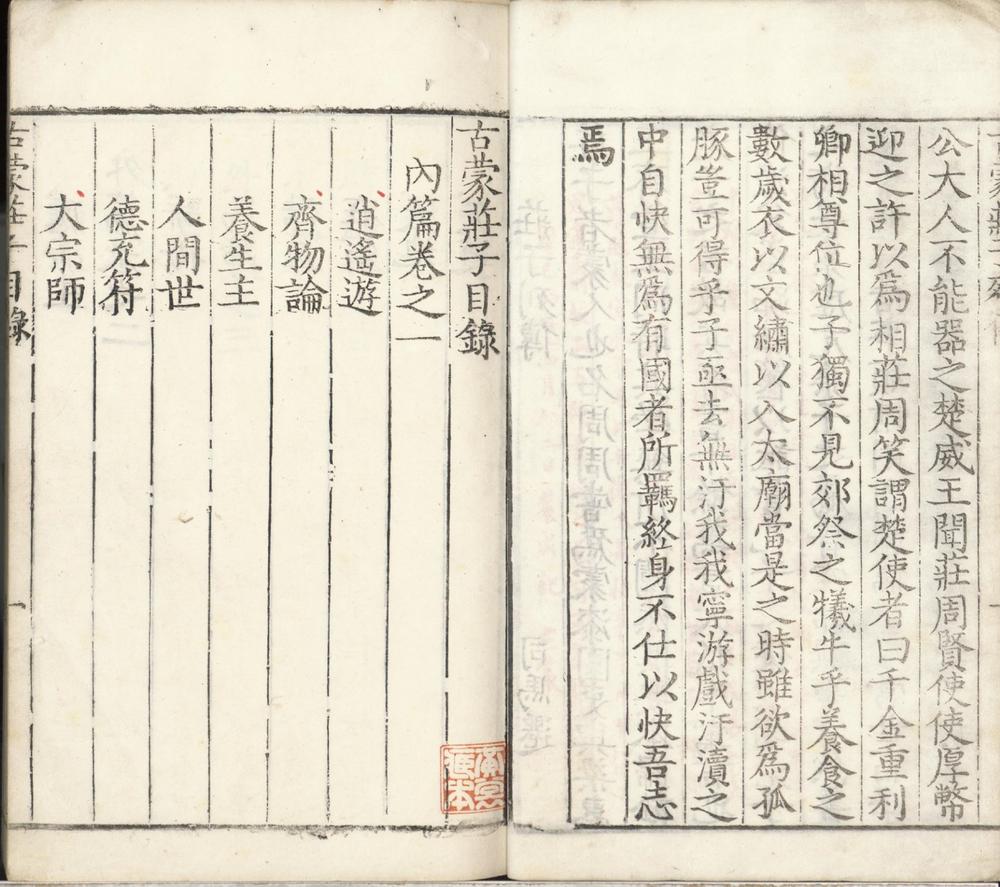 公大人不能器之楚威王聞莊周賢使使厚幣
迎之許以為相莊周笑謂楚使者曰千金重利
卿相尊位也子獨不見郊祭之犧牛乎養食之
數歲衣以文繡以入太廟當是之時雖欲為孤
豚豈可得乎子亟去無汙我我寧游戲汙瀆之
中自快無為有國者所羈終身不仕以快吾志
焉
古蒙莊子目錄
內篇卷之一
逍遙遊
齊物論
養生主
人間世
德充符
大宗師
古蒙莊子目錄
一